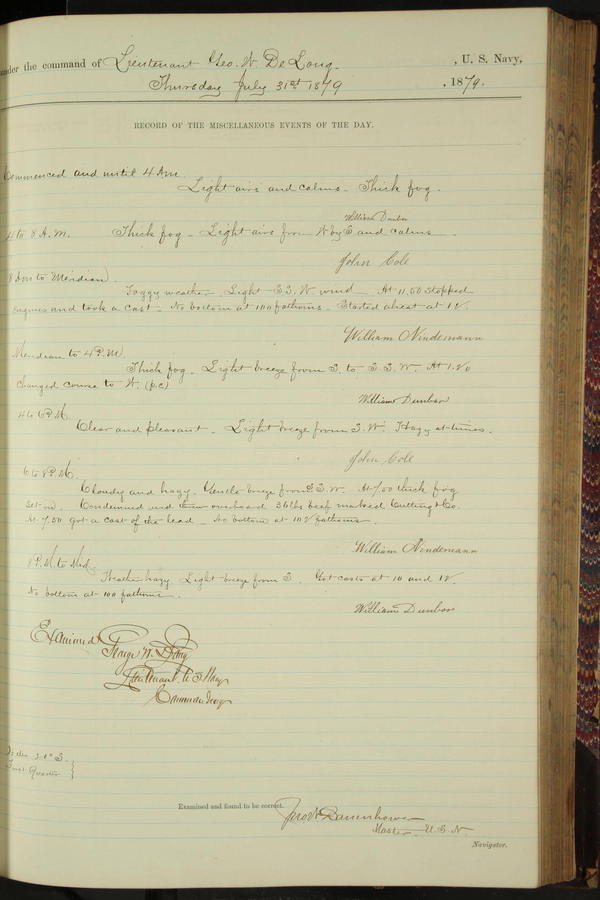 under the command of Lieutenant Geo. W. De Long, U. S. Navy,
Thursday July 31st 1879, 1879.
RECORD OF THE MISCELLANEOUS EVENTS OF THE DAY.
Commenced and until 4 A.M.
Light airs and calms - Thick fog.
William Dunbar
4 to 8 A.M. Thick fog - Light airs from W by S and calms.
John Cole
8 A.M. to Meridian.
Foggy weather. Light S.S.W. wind. At 11.50 stopped
Engines and took a cast - No bottom at 100 fathoms. Started ahead at 12.
William Nindemann
Meridian to 4 P.M.
Thick fog - Light breeze from S. to S.S.W. At 1.20
changed course to W. (p.c)
William Dunbar
4 to 6 P.M.
Clear and pleasant - Light breeze from S.W. Hazy at times.
John Cole
6 to 8 P.M.
Cloudy and hazy. Gentle breeze from S.S.W. At 7.00 thick fog
set in. Condemned and threw overboard 36 lbs beef marked Cutting & Co.
At 7.50 got a cast of the lead - No bottom at 102 fathoms.
William Nindemann
8 P.M. to Mid.
Weather hazy Light breeze from S. Got casts at 10 and 12.
No bottom at 100 fathoms.
William Dunbar
Examined
George W. De Long
Lieutenant U.S. Navy
Commanding
21° S.
Quarter
Examined and found to be correct.
Jno W Danenhower
Master U.S.N.
Navigator.